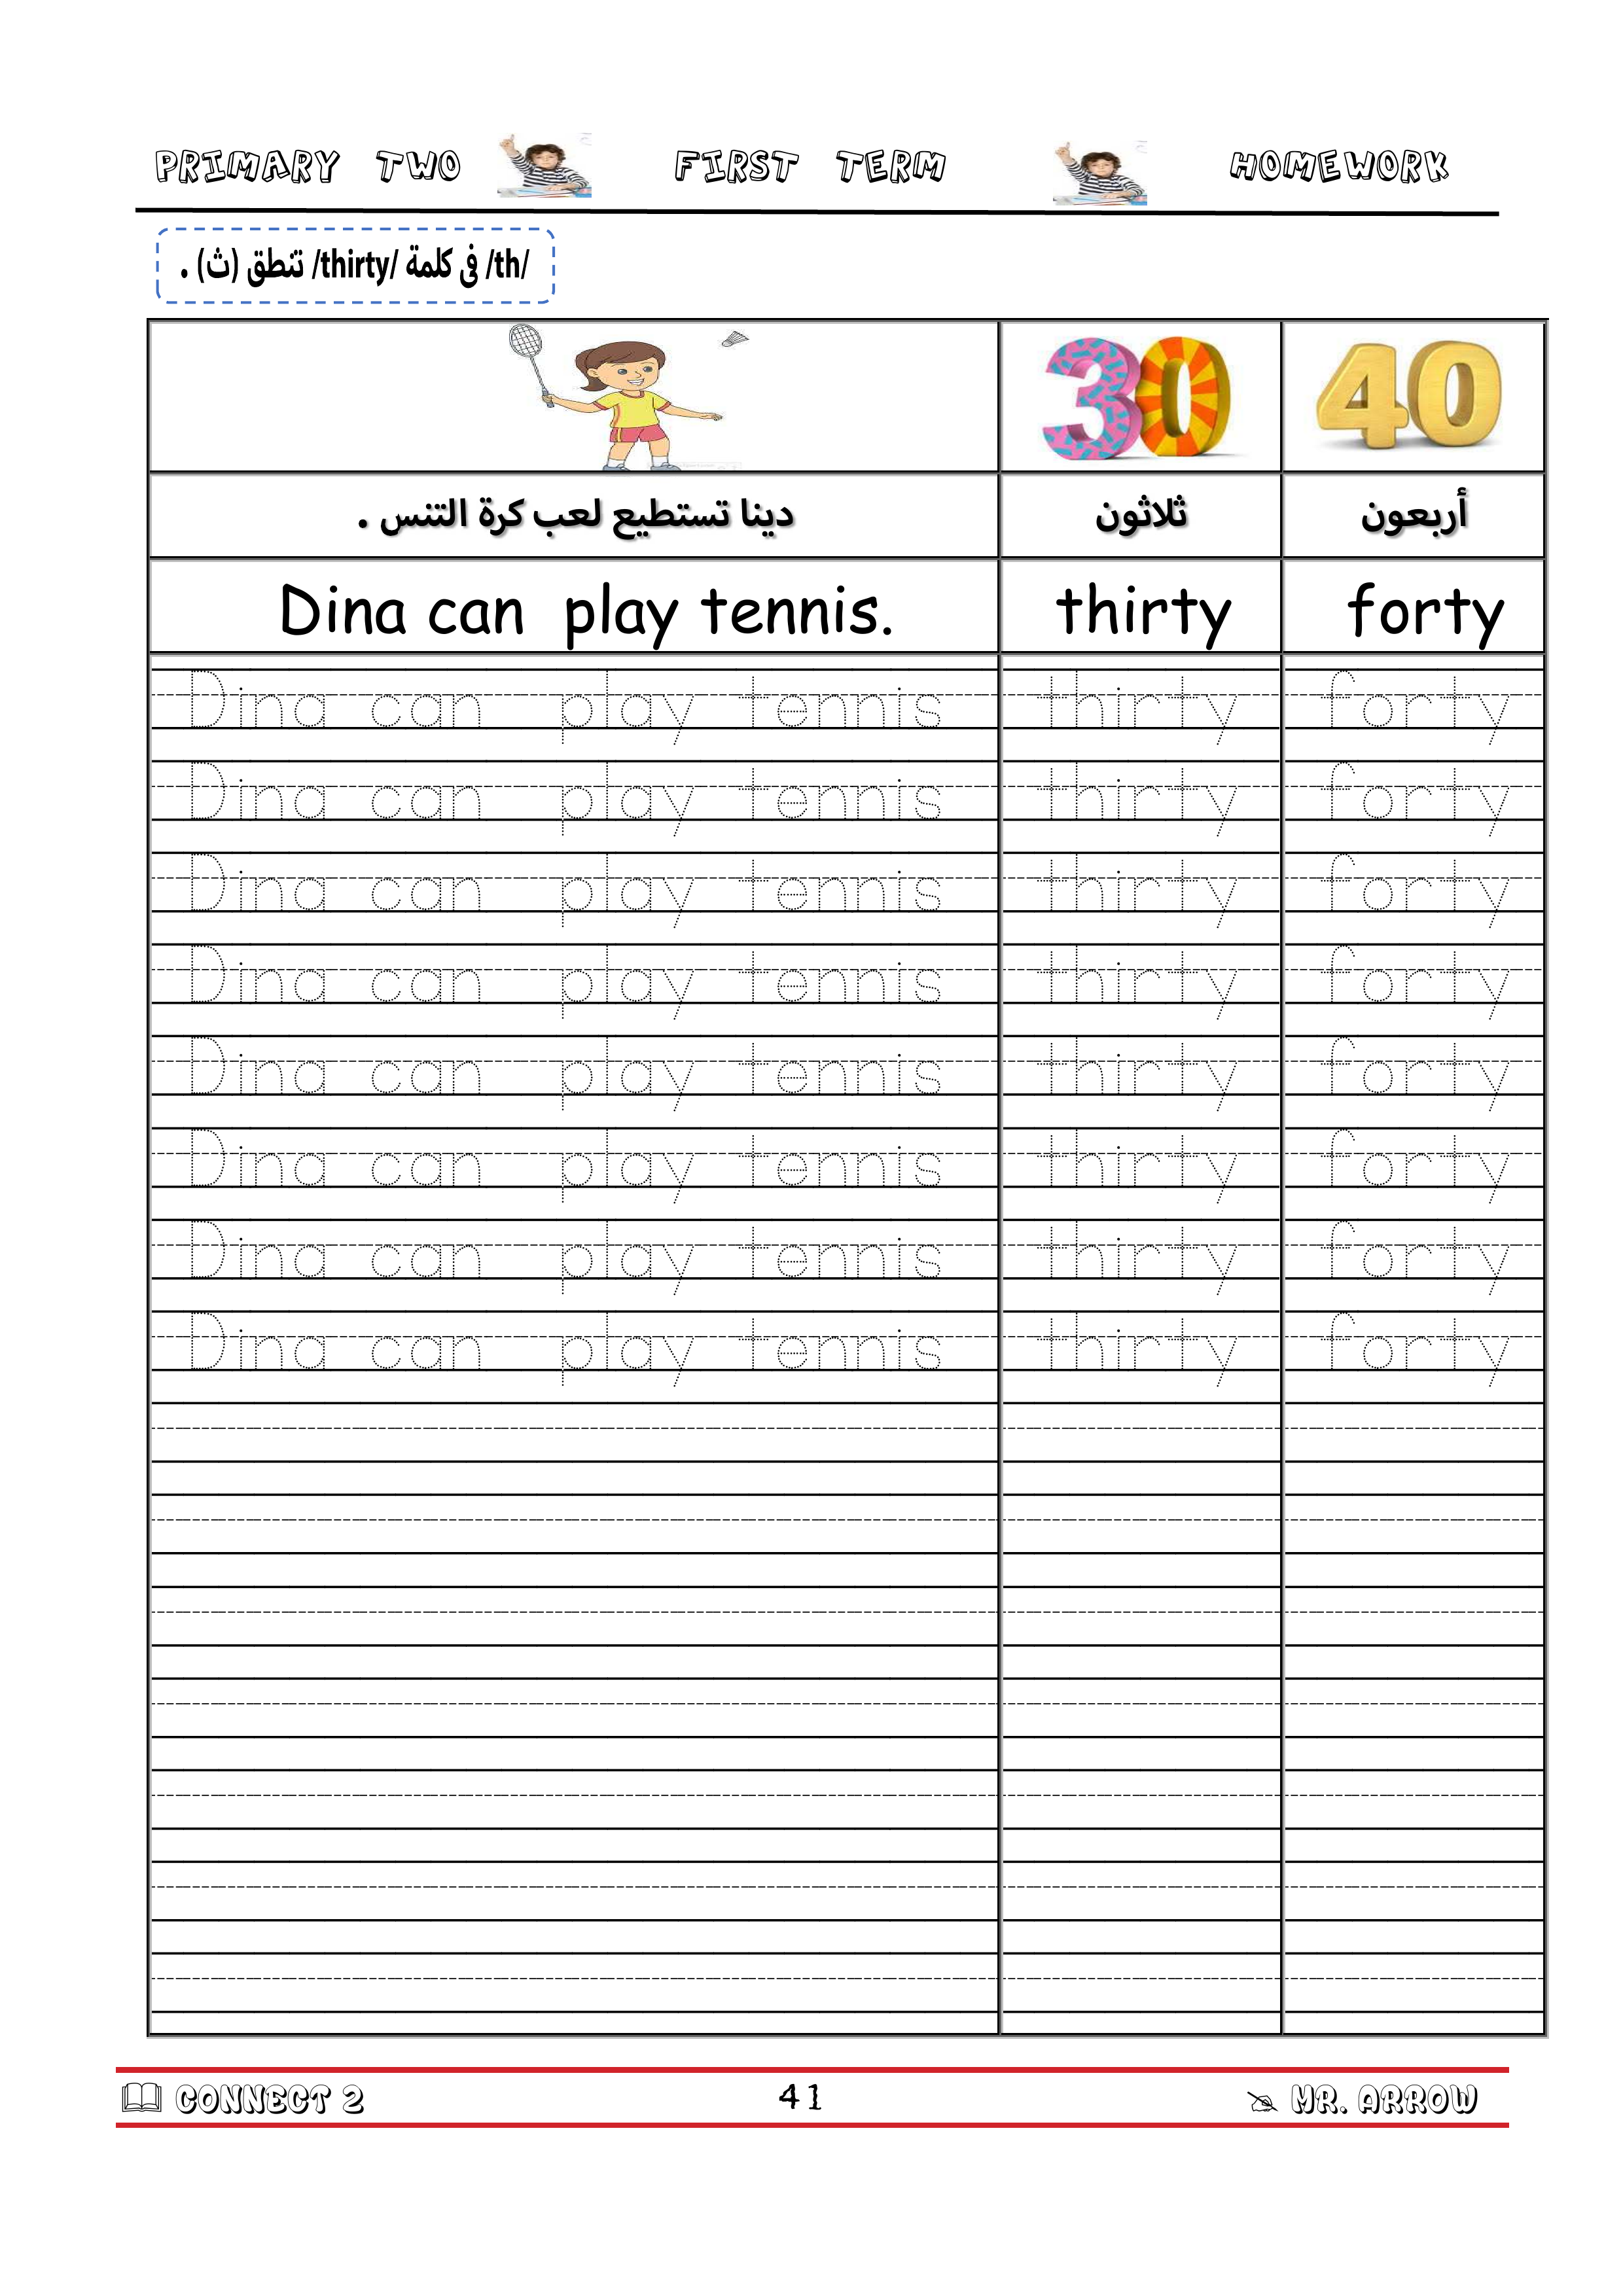 PRIMARY TWO FIRST TERM HOMEWORK
/th/ فى كلمة /thirty/ تنطق (ث) .
30 40
دينا تستطيع لعب كرة التنس . ثلاثون أربعون
Dina can play tennis. thirty forty
Dina can play tennis thirty forty
Dina can play tennis thirty forty
Dina can play tennis thirty forty
Dina can play tennis thirty forty
Dina can play tennis thirty forty
Dina can play tennis thirty forty
Dina can play tennis thirty forty
Dina can play tennis thirty forty
CONNECT 2 41 MR. ARROW